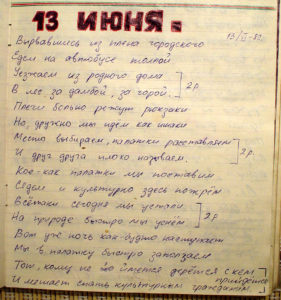 13 ИЮНЯ =
13/II-82
Вырвавшись из плена городского
Едем на автобусе толпой
Уезжаем из родного дома
В лес за дамбой, за горой.
2 р.
Плечи больно режут рюкзаки
Но, дружно мы идем как ишаки
Место выбираем, палатки расставляем
И друг друга плохо называем.
2 р.
Кое-как палатки мы поставим
Сядем и культурно здесь пожрём
Всётаки сегодня мы устали
На природе быстро мы уснём
2 р.
Вот уж ночь как-будто наступает
Мы в палатку быстро заползаем
Том, кому не то йметса дерётся с кем
прийдётся
И мешает спать культурным гражданам